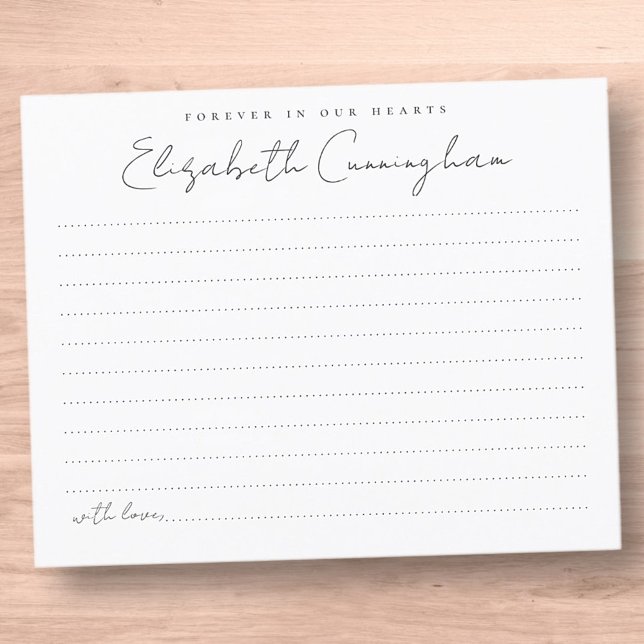 FOREVER IN OUR HEARTS
Elizabeth Cunningham
with love,